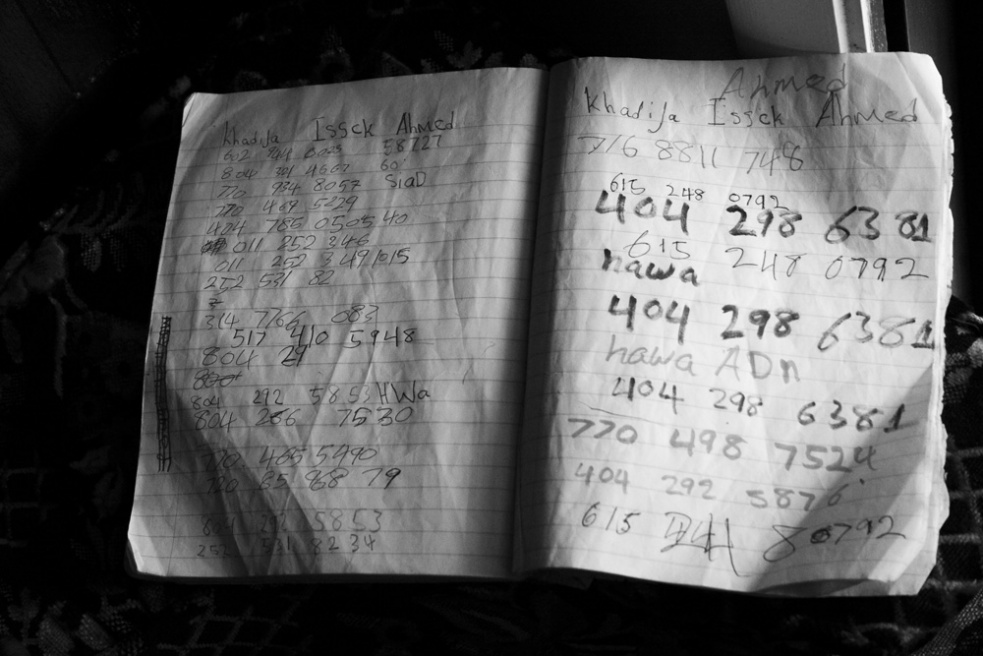 Khadija Issck Ahmed
58727
804 301 4667 60
770 934 8057 SiaD
770 469 5229
404 785 0505 40
011 252 346
011 252 3 491015
252 531 82
314 7766 083
517 410 5948
804 29
804 292 5853 HWa
804 286 7530
770 465 5990
770 968 79
804 292 5853
252 531 82 34
Ahmed
Khadija Issck Ahmed
716 8811 748
615 248 0792
404 298 6381
615 248 0792
hawa
404 298 6381
hawa ADn
404 298 6381
770 498 7524
404 292 5876
615 80792